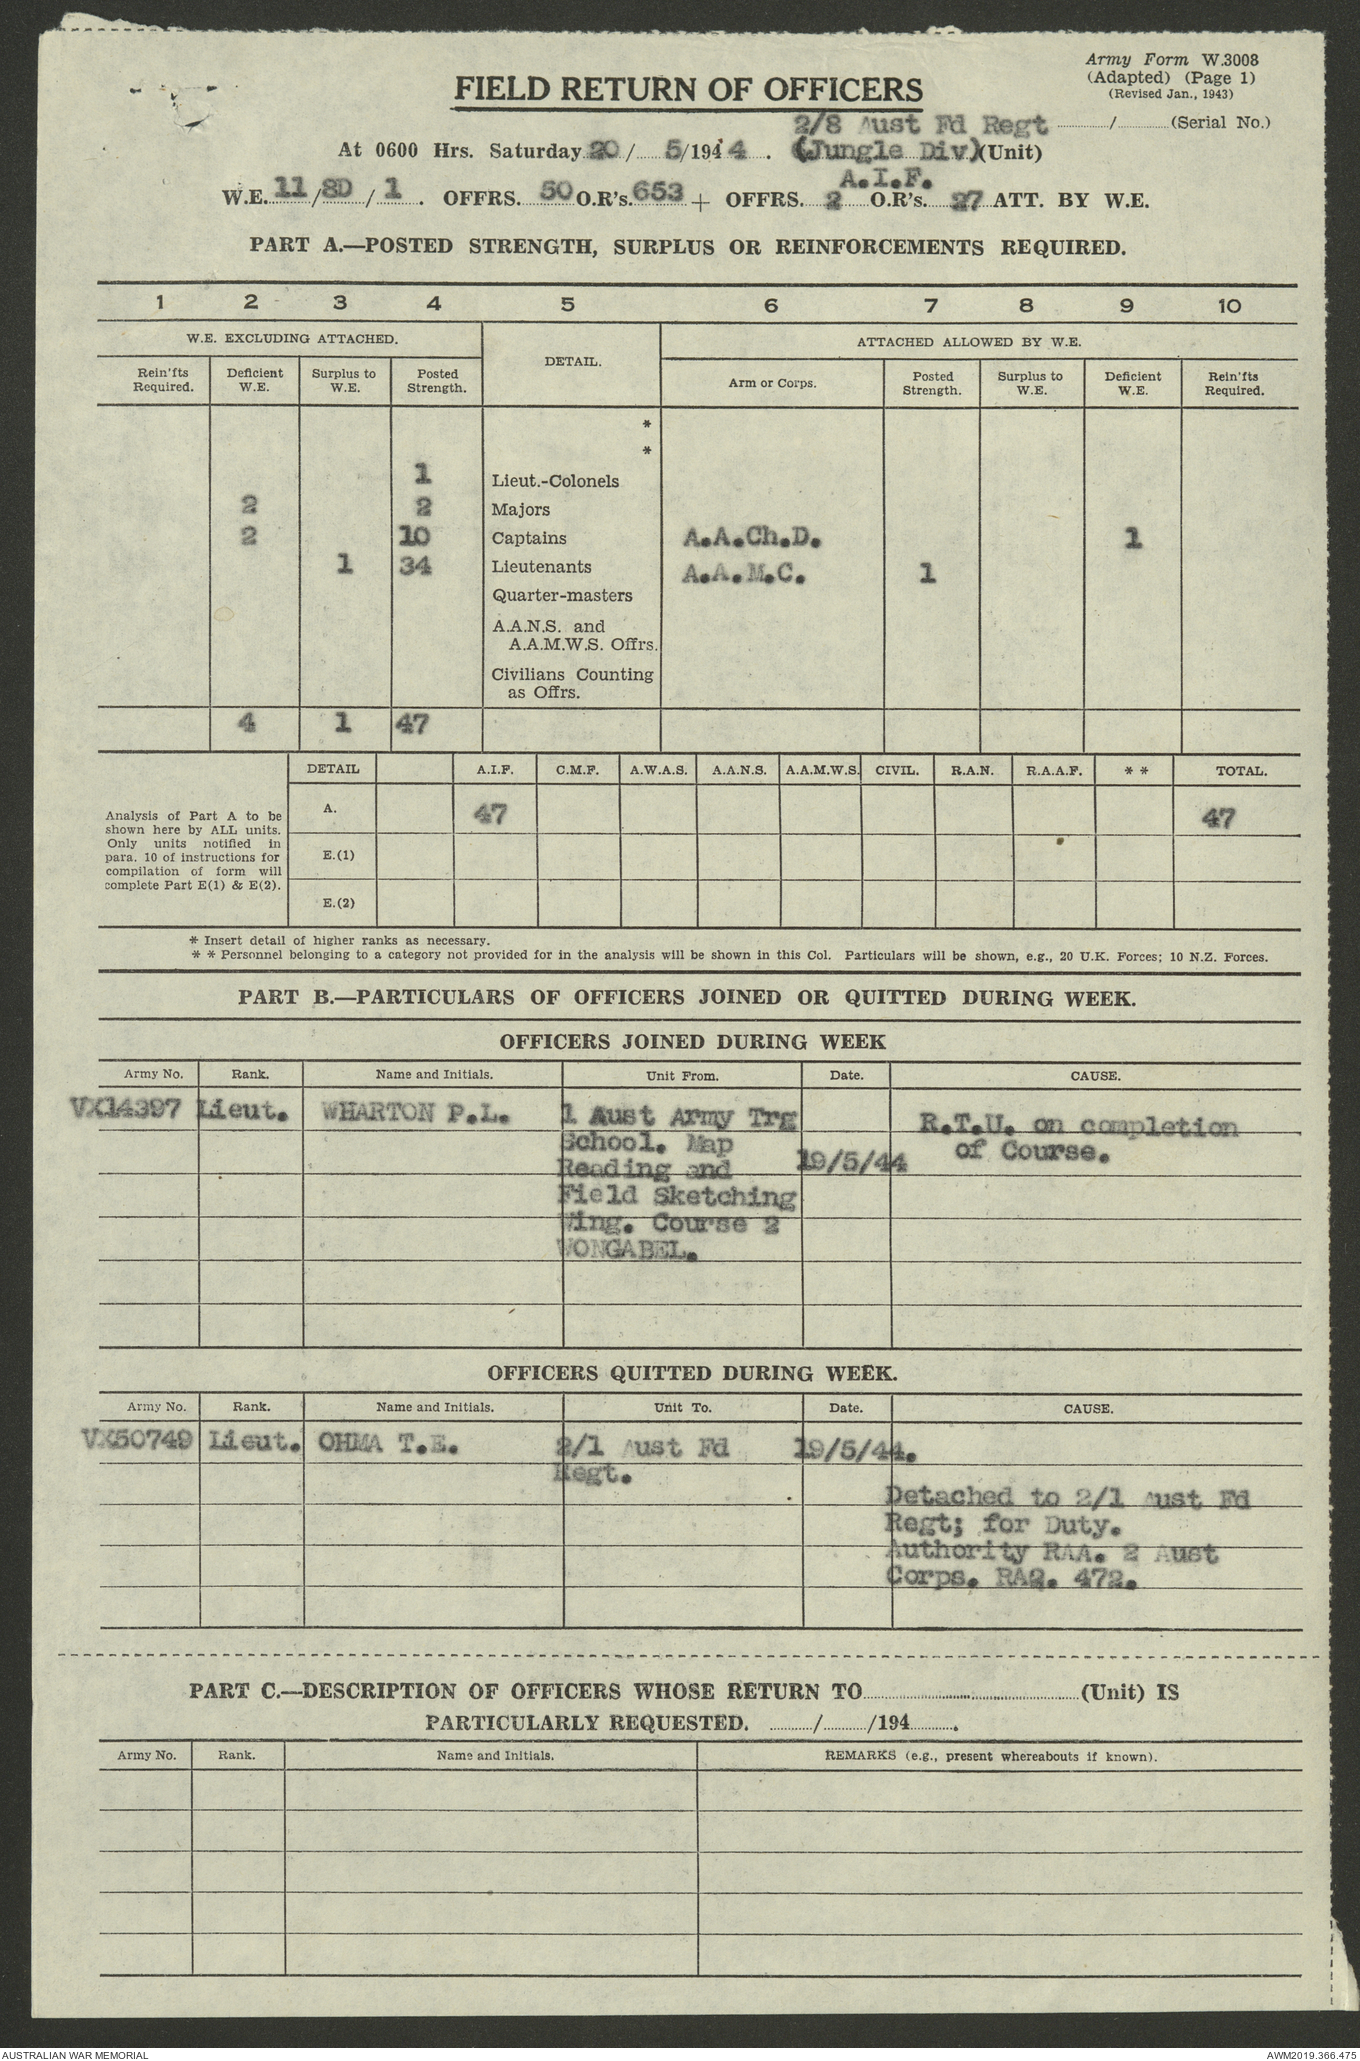 Army Form W.3008
(Adapted) (Page 1)
(Revised Jan., 1943)
FIELD RETURN OF OFFICERS
2/8 Aust Fd Regt ........./......... (Serial No.)
At 0600 Hrs. Saturday 20 / 5/194 4 . (Jungle Div)(Unit)
A.I.F.
W.E. 11 /SD / 1 . OFFRS. 50 O.R's. 653 + OFFRS. 2 O.R's. 27 ATT. BY W.E.
PART A.—POSTED STRENGTH, SURPLUS OR REINFORCEMENTS REQUIRED.
1 2 3 4 5 6 7 8 9 10
W.E. EXCLUDING ATTACHED. DETAIL. ATTACHED ALLOWED BY W.E.
Rein'fts Required. Deficient W.E. Surplus to W.E. Posted Strength. Arm or Corps. Posted Strength. Surplus to W.E. Deficient W.E. Rein'fts Required.
*
*
1 Lieut.-Colonels
2 2 Majors
2 10 Captains A.A.Ch.D. 1
1 34 Lieutenants A.A.M.C. 1
Quarter-masters
A.A.N.S. and
A.A.M.W.S. Offrs.
Civilians Counting
as Offrs.
4 1 47
DETAIL A.I.F. C.M.F. A.W.A.S. A.A.N.S. A.A.M.W.S. CIVIL. R.A.N. R.A.A.F. * * TOTAL.
A. 47 47
Analysis of Part A to be
shown here by ALL units.
Only units notified in
para. 10 of instructions for
compilation of form will
complete Part E(1) & E(2).
E.(1)
E.(2)
* Insert detail of higher ranks as necessary.
* * Personnel belonging to a category not provided for in the analysis will be shown in this Col. Particulars will be shown, e.g., 20 U.K. Forces; 10 N.Z. Forces.
PART B.—PARTICULARS OF OFFICERS JOINED OR QUITTED DURING WEEK.
OFFICERS JOINED DURING WEEK
Army No. Rank. Name and Initials. Unit From. Date. CAUSE.
VX14397 Lieut. WHARTON P.L. 1 Aust Army Trg
School. Map
Reading and
Field Sketching
Wing. Course 2
WONGABEL.
19/5/44
R.T.U. on completion
of Course.
OFFICERS QUITTED DURING WEEK.
Army No. Rank. Name and Initials. Unit To. Date. CAUSE.
VX50749 Lieut. OHMA T.E. 2/1 Aust Fd
Regt.
19/5/44.
Detached to 2/1 Aust Fd
Regt; for Duty.
Authority RAA. 2 Aust
Corps. RA2. 472.
PART C.—DESCRIPTION OF OFFICERS WHOSE RETURN TO.......................(Unit) IS
PARTICULARLY REQUESTED. ........./........./194.........
Army No. Rank. Name and Initials. REMARKS (e.g., present whereabouts if known).
AUSTRALIAN WAR MEMORIAL
AWM2019.366.475